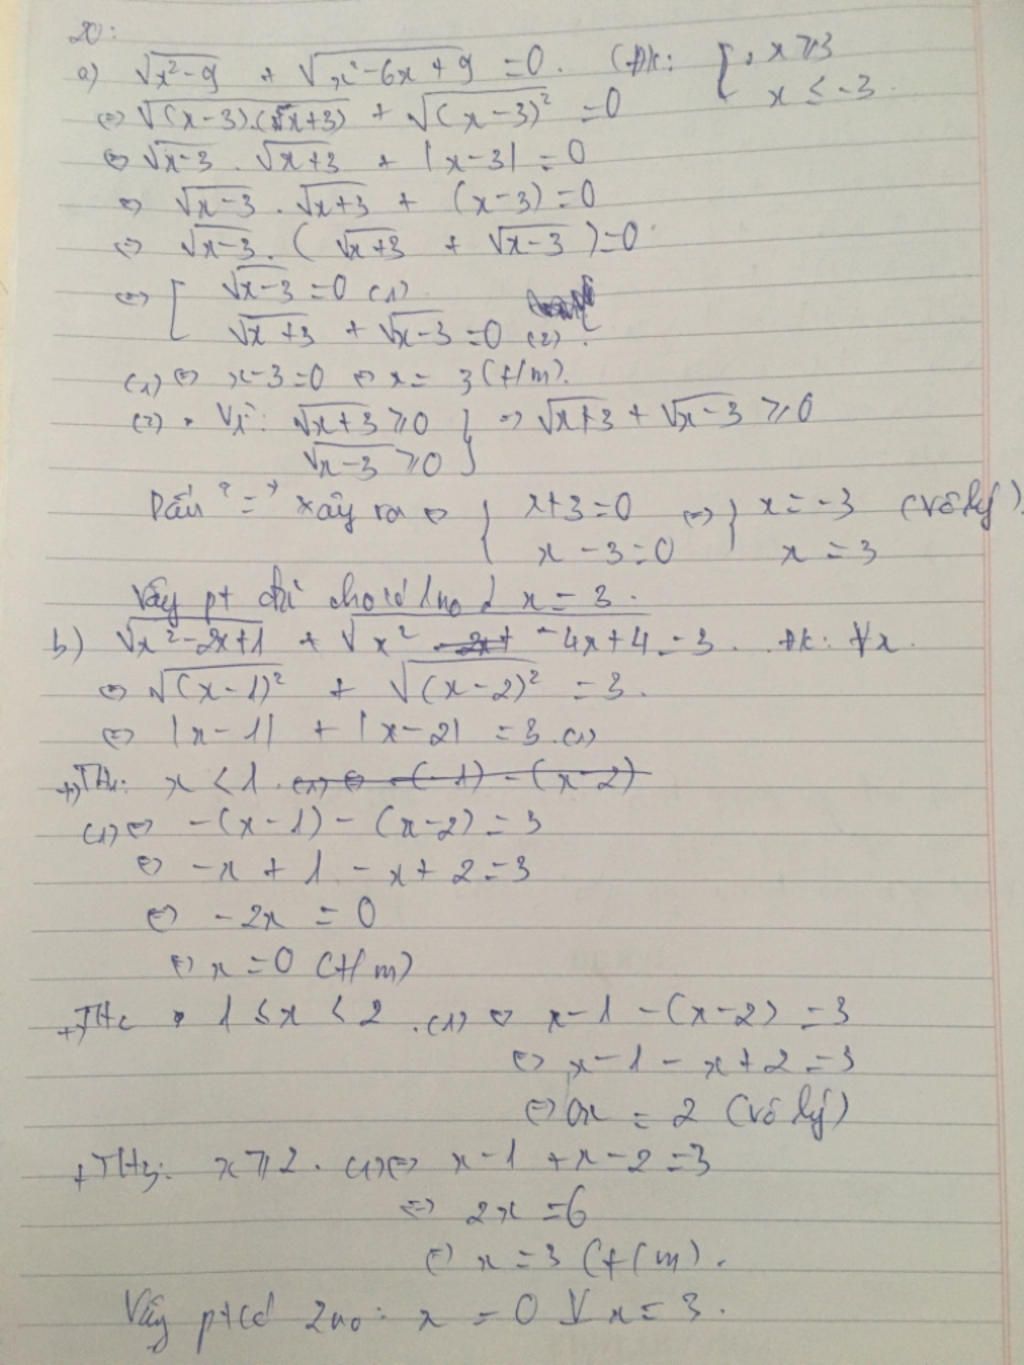 20:
a) √(x²-9) + √(x²-6x+9) = 0. (Đk: [ x ⩾ 3
x ≤ -3
⇔ √((x-3).(x+3)) + √((x-3)²) = 0
⇔ √(x-3) . √(x+3) + |x-3| = 0
⇔ √(x-3) . √(x+3) + (x-3) = 0
⇔ √(x-3) . (√(x+3) + √(x-3)) = 0
⇔ [ √(x-3) = 0 (1)
√(x+3) + √(x-3) = 0 (2).
(1) ⇔ x-3=0 ⇔ x = 3 (t/m).
(2) • Vì: √(x+3) ⩾ 0 } ⇒ √(x+3) + √(x-3) ⩾ 0
√(x-3) ⩾ 0
Dấu "=" xảy ra ⇔ { x+3=0 ⇔ { x = -3 (vô lý).
x - 3 = 0 x = 3
Vậy pt đã cho có 1no là x = 3.
b) √(x²-2x+1) + √(x² -4x+4) = 3. Đk: ∀x.
⇔ √((x-1)²) + √((x-2)²) = 3.
⇔ |x-1| + |x-2| = 3. (1)
+) TH1: x < 1. (1) ⇔ -(-1) - (x-2)
(1) ⇔ -(x-1) - (x-2) = 3
⇔ -x + 1 - x + 2 = 3
⇔ -2x = 0
⇔ x = 0 (t/m)
+) TH2 • 1 ≤ x < 2 . (1) ⇔ x-1 -(x-2) = 3
⇔ x-1 - x+2 = 3
⇔ 0x = 2 (vô lý)
+ TH3: x ⩾ 2. (1) ⇔ x-1 + x-2 = 3
⇔ 2x = 6
⇔ x = 3 (t/m).
Vậy pt có 2no: x = 0 V x = 3.